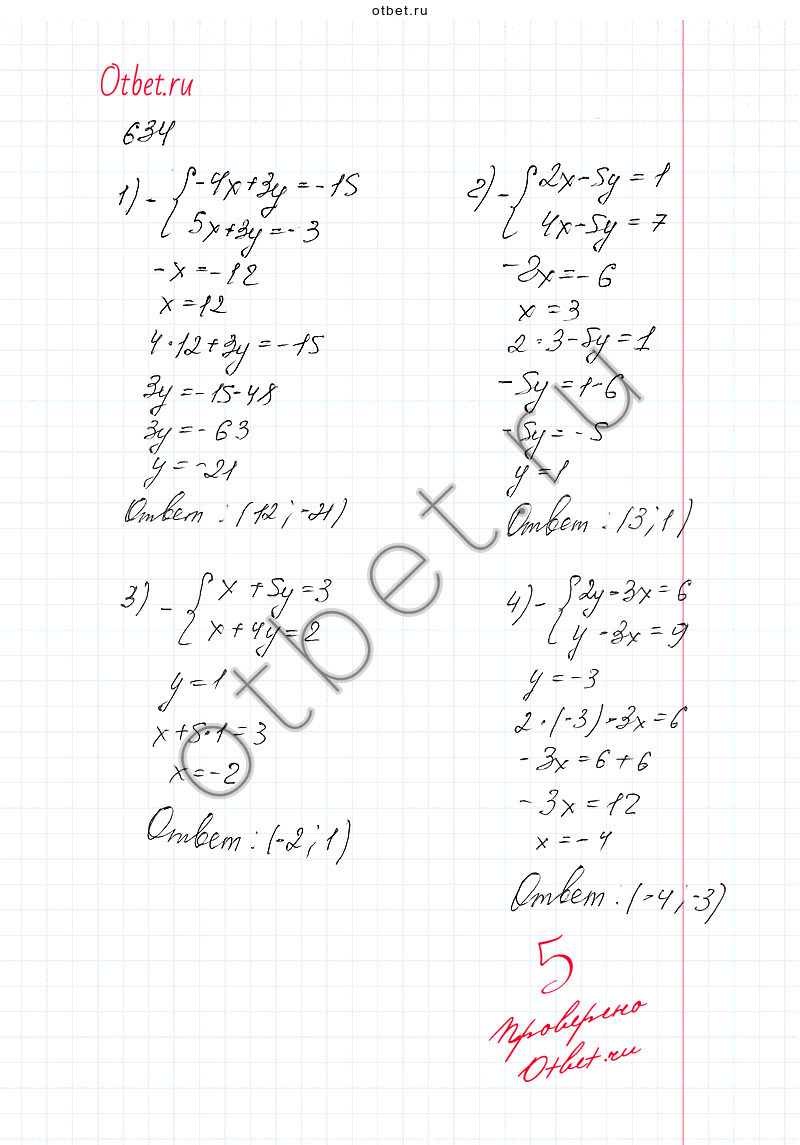 otbet.ru
Otbet.ru
634
1) - { -4x+3y=-15
5x+3y=-3
-x=-12
x=12
4·12+3y=-15
3y=-15-48
3y=-63
y=-21
Ответ: (12; -21)
2) - { 2x-5y=1
4x-5y=7
-2x=-6
x=3
2·3-5y=1
-5y=1-6
-5y=-5
y=1
Ответ: (3; 1)
3) - { x+5y=3
x+4y=2
y=1
x+5·1=3
x=-2
Ответ: (-2; 1)
4) - { 2y-3x=6
y-3x=9
y=-3
2·(-3)-3x=6
-3x=6+6
-3x=12
x=-4
Ответ: (-4; -3)
5
Проверено
Otbet.ru
otbet.ru